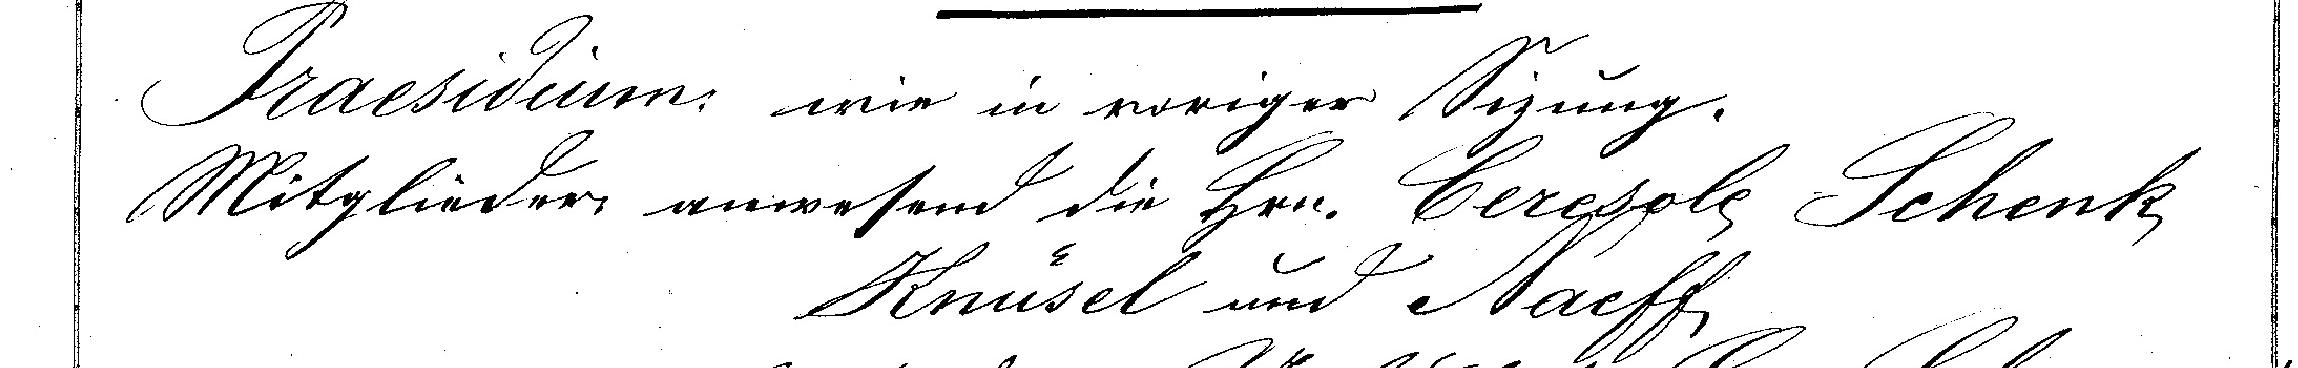 Praesidium: wie in voriger Sizung.
Mitglieder: anwesend die Hrn. Ceresole, Schenk,
Knüsel und Naeff,